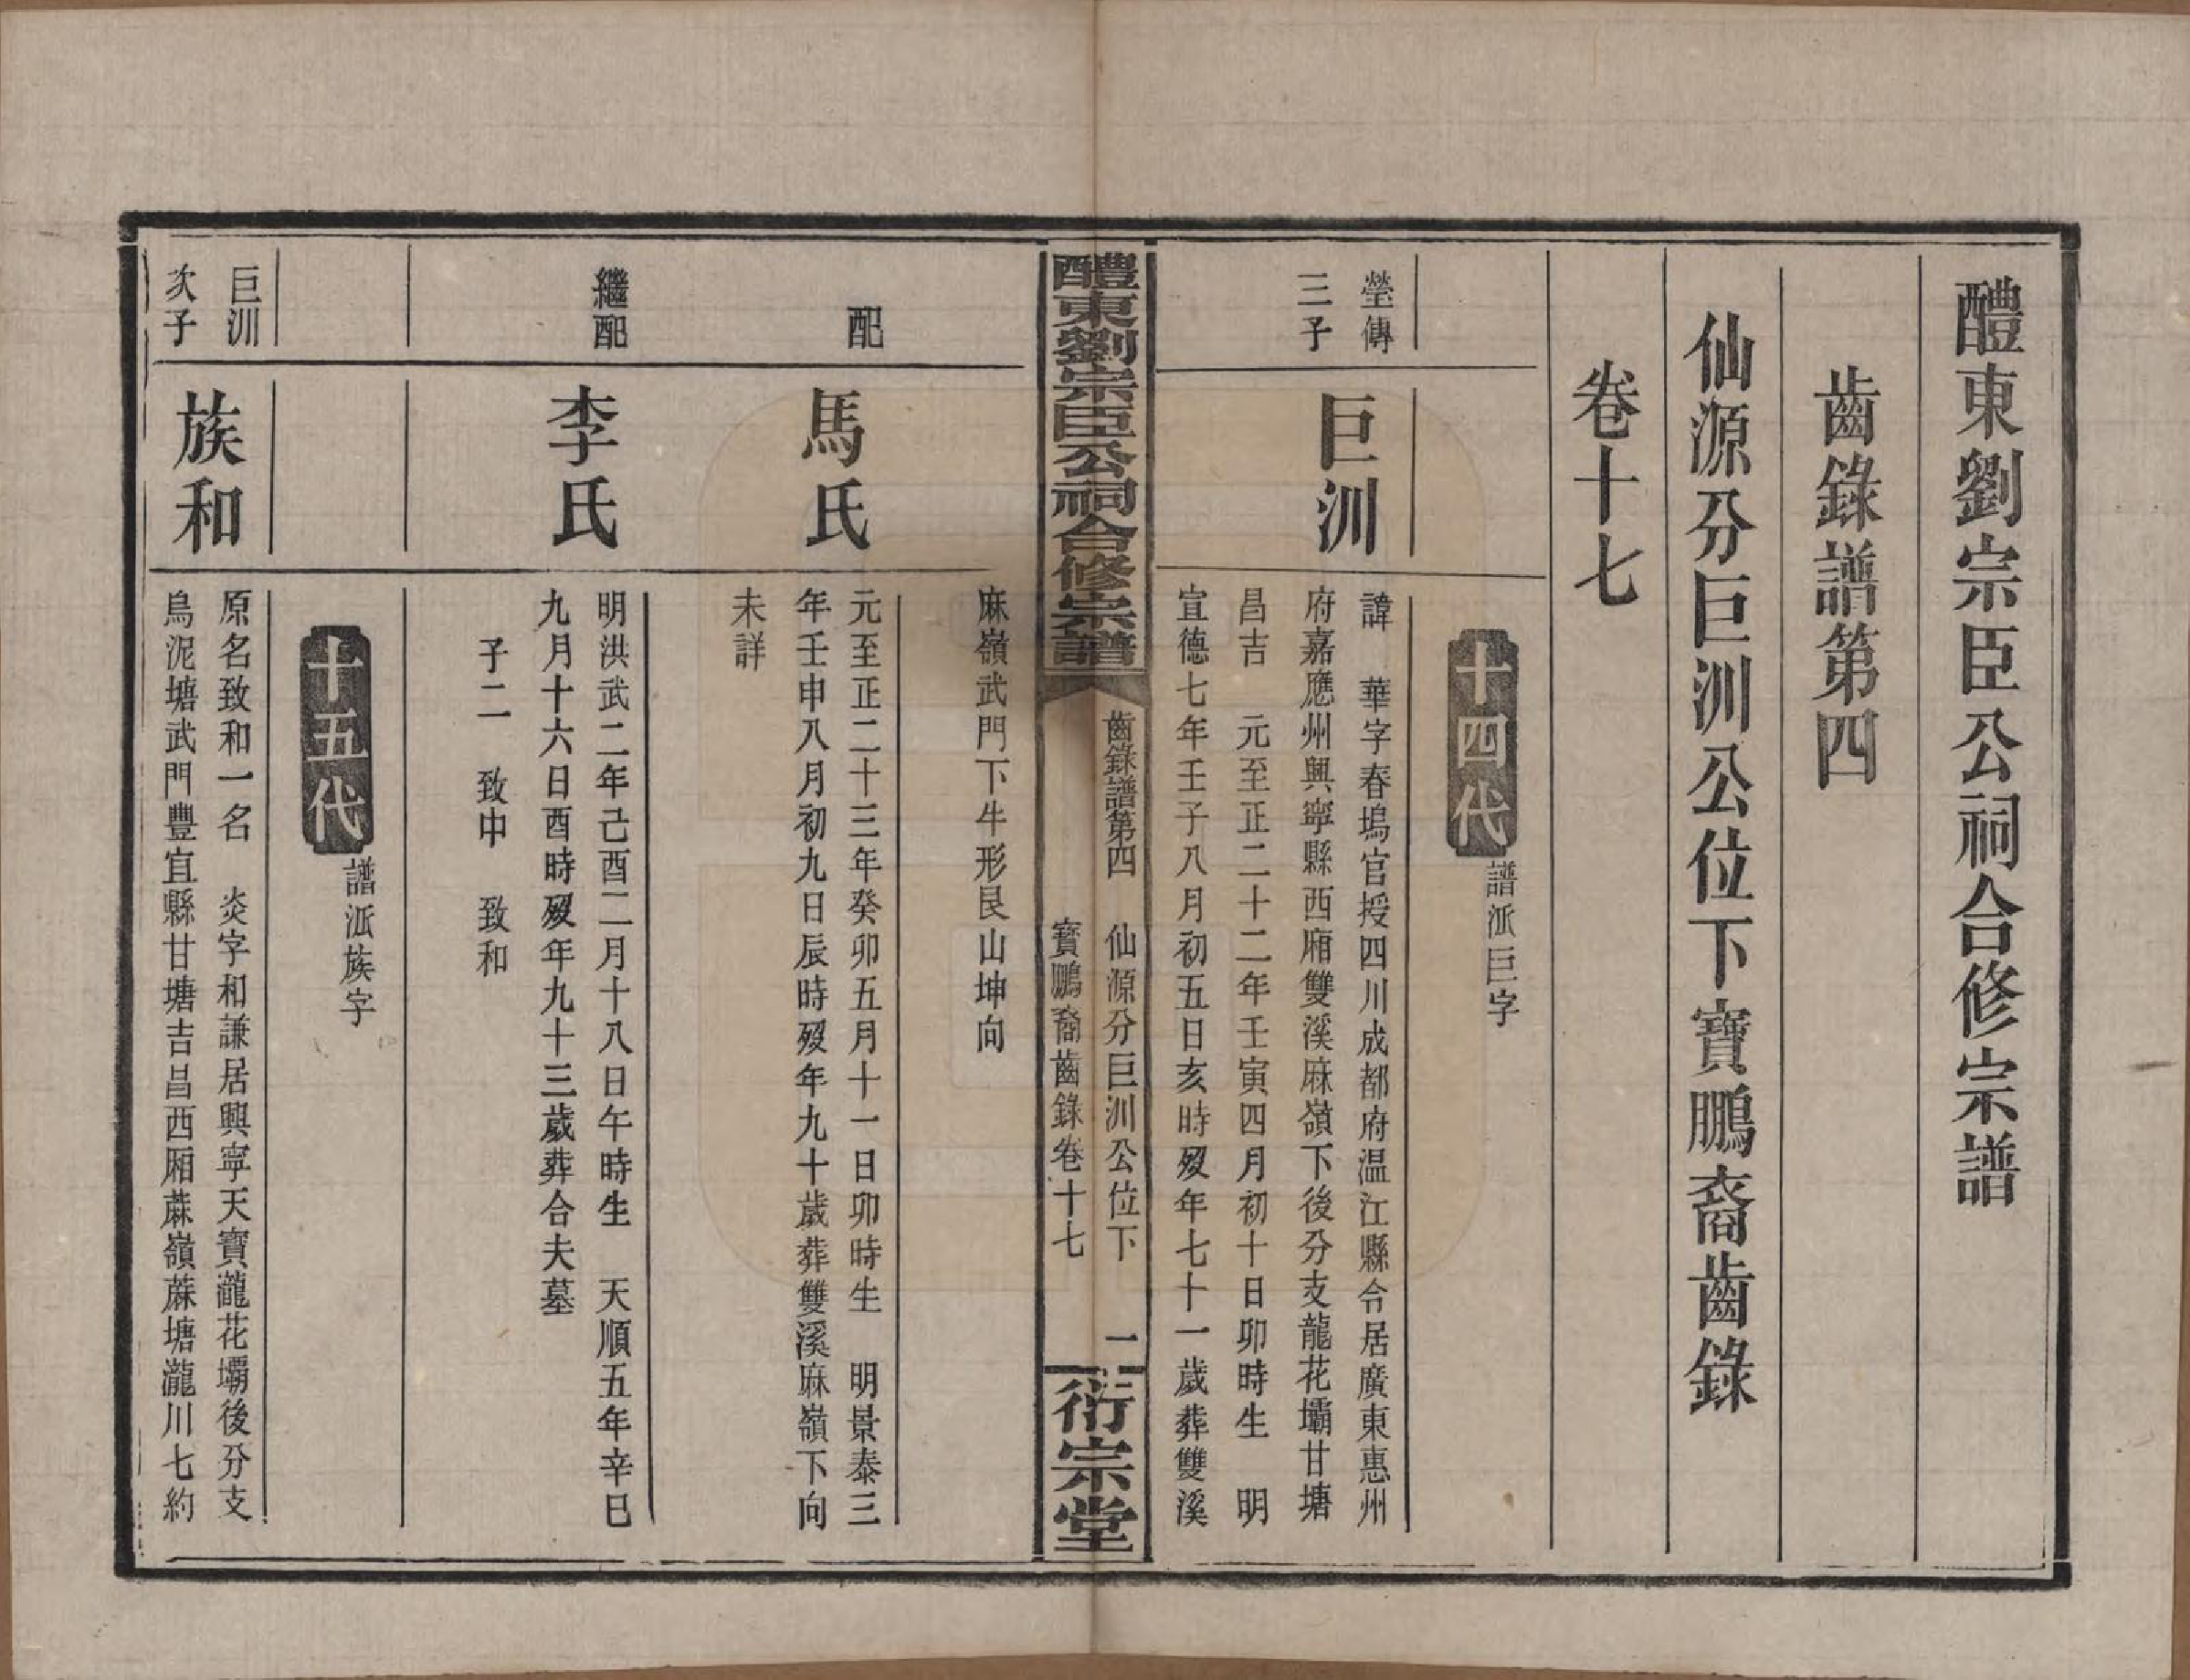 醴東劉宗臣公祠合修宗譜
齒錄譜第四
仙源分巨洲公位下寶鵬裔齒錄
卷十七
十四代
譜派巨字
瑩傳
三子
巨洲
諱　華字春塢官授四川成都府温江縣令居廣東惠州
府嘉應州興寧縣西廂雙溪麻嶺下後分支龍花壩甘塘
昌吉　元至正二十二年壬寅四月初十日卯時生　明
宣德七年壬子八月初五日亥時歿年七十一歲葬雙溪
醴東劉宗臣公祠合修宗譜
齒錄譜第四　仙源分巨洲公位下　一
寶鵬裔齒錄卷十七
衍宗堂
麻嶺武門下牛形艮山坤向
配
馬氏
元至正二十三年癸卯五月十一日卯時生　明景泰三
年壬申八月初九日辰時歿年九十歲葬雙溪麻嶺下向
未詳
繼配
李氏
明洪武二年己酉二月十八日午時生　天順五年辛巳
九月十六日酉時歿年九十三歲葬合夫墓
子二　致中　致和
十五代
譜派族字
巨洲
次子
族和
原名致和一名　炎字和謙居興寧天寶蘢花壩後分支
烏泥塘武門豐宜縣甘塘吉昌西廂蔴嶺蔴塘瀧川七約